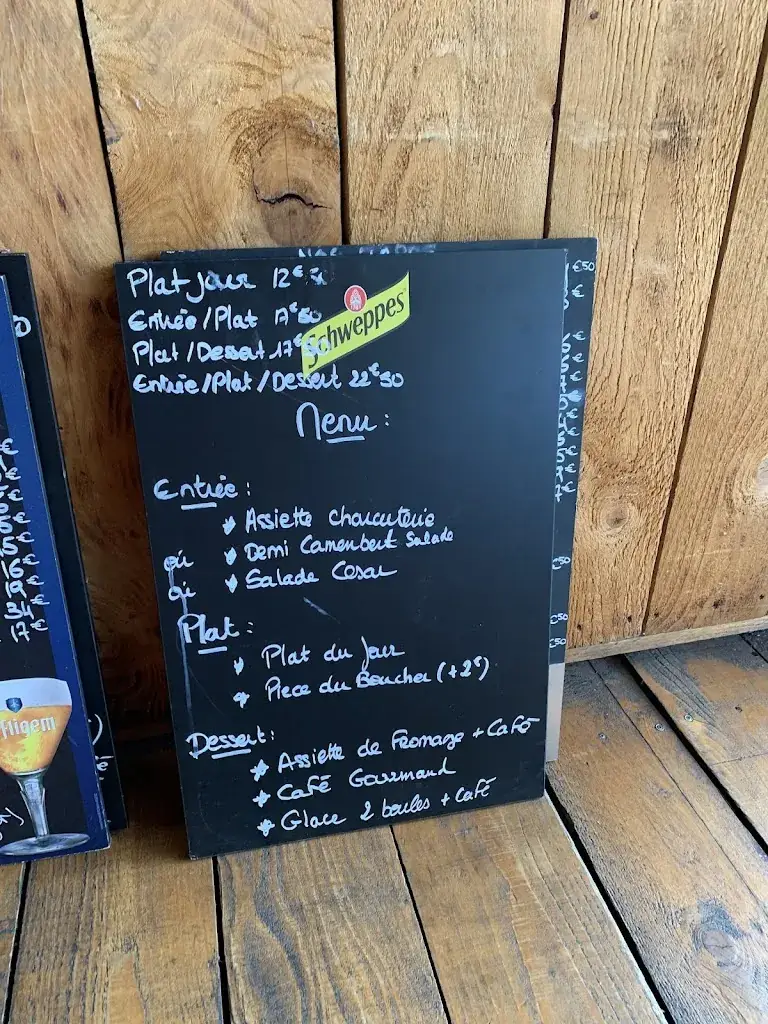 Plat jour 12€50
Entrée/Plat 17€50
Plat/Dessert 17€50
Entrée/Plat/Dessert 22€50
Schweppes
Menu :
Entrée :
Assiette charcuterie
où Demi Camembert Salade
où Salade Cesar
Plat :
Plat du jour
Piece du Boucher (+2€)
Dessert :
Assiette de Fromage + Café
Café Gourmand
Glace 2 boules + Café
€50
€
€50
€50
€50
5€
16€
19€
34€
17€
ffligem